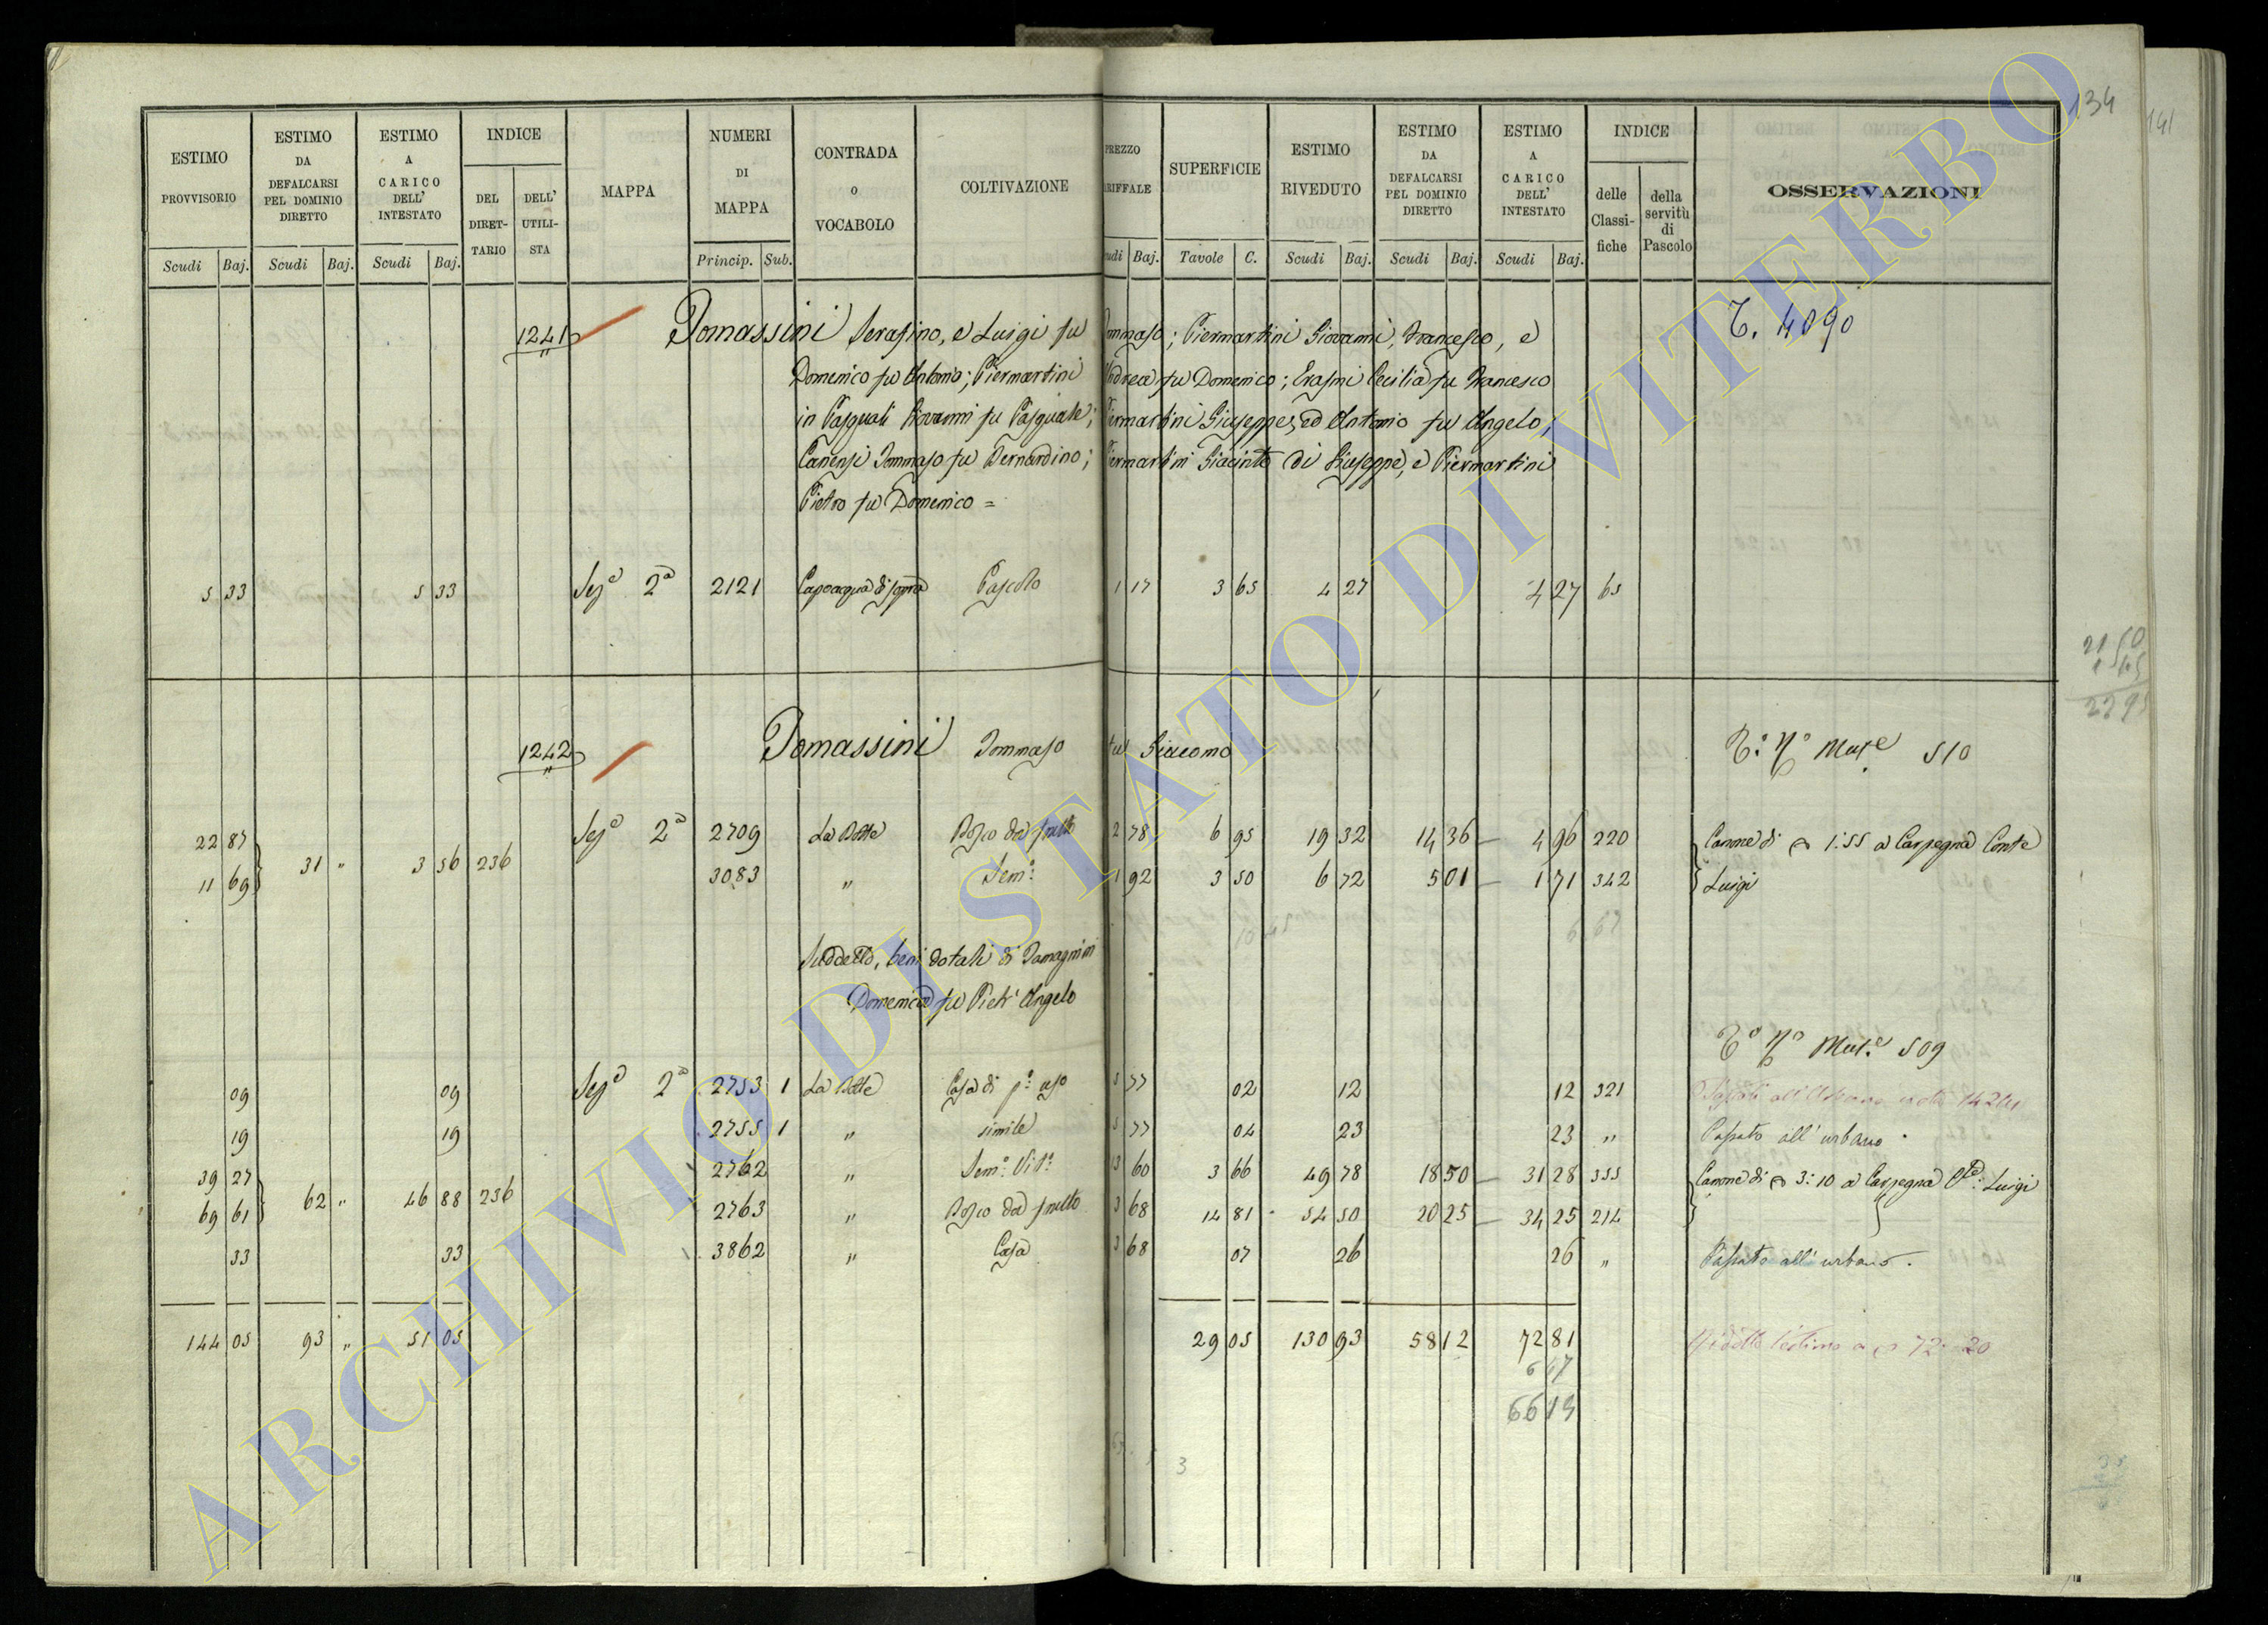 134
141
ESTIMO PROVVISORIO
ESTIMO DA DEFALCARSI PEL DOMINIO DIRETTO
ESTIMO A CARICO DELL' INTESTATO
INDICE
DEL DIRET-TARIO
DELL' UTILI-STA
MAPPA
NUMERI DI MAPPA
CONTRADA O VOCABOLO
COLTIVAZIONE
PREZZO
SUPERFICIE
ESTIMO RIVEDUTO
ESTIMO DA DEFALCARSI PEL DOMINIO DIRETTO
ESTIMO A CARICO DELL' INTESTATO
INDICE
delle Classi-fiche
della servitù di Pascolo
OSSERVAZIONI
Scudi Baj. Scudi Baj. Scudi Baj. Princip. Sub. Baj. Tavole C. Scudi Baj. Scudi Baj. Scudi Baj.
1241 Tomassini Serafino, e Luigi fu Tommaso; Piermartini Giovanni, Francesco, e T. 4090
Domenico fu Antonio; Piermartini Andrea fu Domenico; Erasmi Cecilia fu Francesco
in Pasquali Giovanni fu Pasquale; Piermartini Giuseppe, ed Antonio fu Angelo;
Canensi Tommaso fu Bernardino; Piermartini Giacinto di Giuseppe, e Piermartini
Pietro fu Domenico =
5 33 5 33 Sez.e 2a 2121 Capoacqua di sopra Pascolo 1 17 3 65 4 27 4 27 65
1242 Tomassini Tommaso fu Giacomo 510
22 87 Sez.e 2a 2709 La Bosco da frutto 2 78 6 95 19 32 14 36 4 96 220 Canone di 1:55 a Carpegna Conte
31 " 3 56 236
11 69 3083 " Sem.o 1 92 3 50 6 72 5 01 1 71 342 Luigi
6 67
Suddetto, beni dotali di Tomagnini
Domenica fu Pietr'Angelo
509
09 09 Sez.e 2a 2753 1 La Casa di p.o uso 5 77 02 12 12 321
19 19 2755 1 " simile 5 77 04 23 23 " Passato all'urbano
39 27 2762 " Sem.o Vit.o 13 60 3 66 49 78 18 50 31 28 355 Canone di 3:10 a Carpegna C.te Luigi
62 " 46 88 236
69 61 2763 " Bosco da frutto 3 68 14 81 54 50 20 25 34 25 214
33 33 3862 " Casa 3 68 07 26 26 " Passato all'urbano.
144 05 93 " 51 05 29 05 130 93 58 12 72 81 72 20
6 67
66 13
3
ARCHIVIO DI STATO DI VITERBO